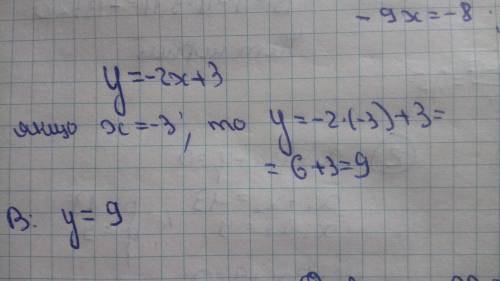 - 9x=-8;
y=-2x+3
якщо x=-3, то y=-2·(-3)+3=
= 6+3=9
В: y=9